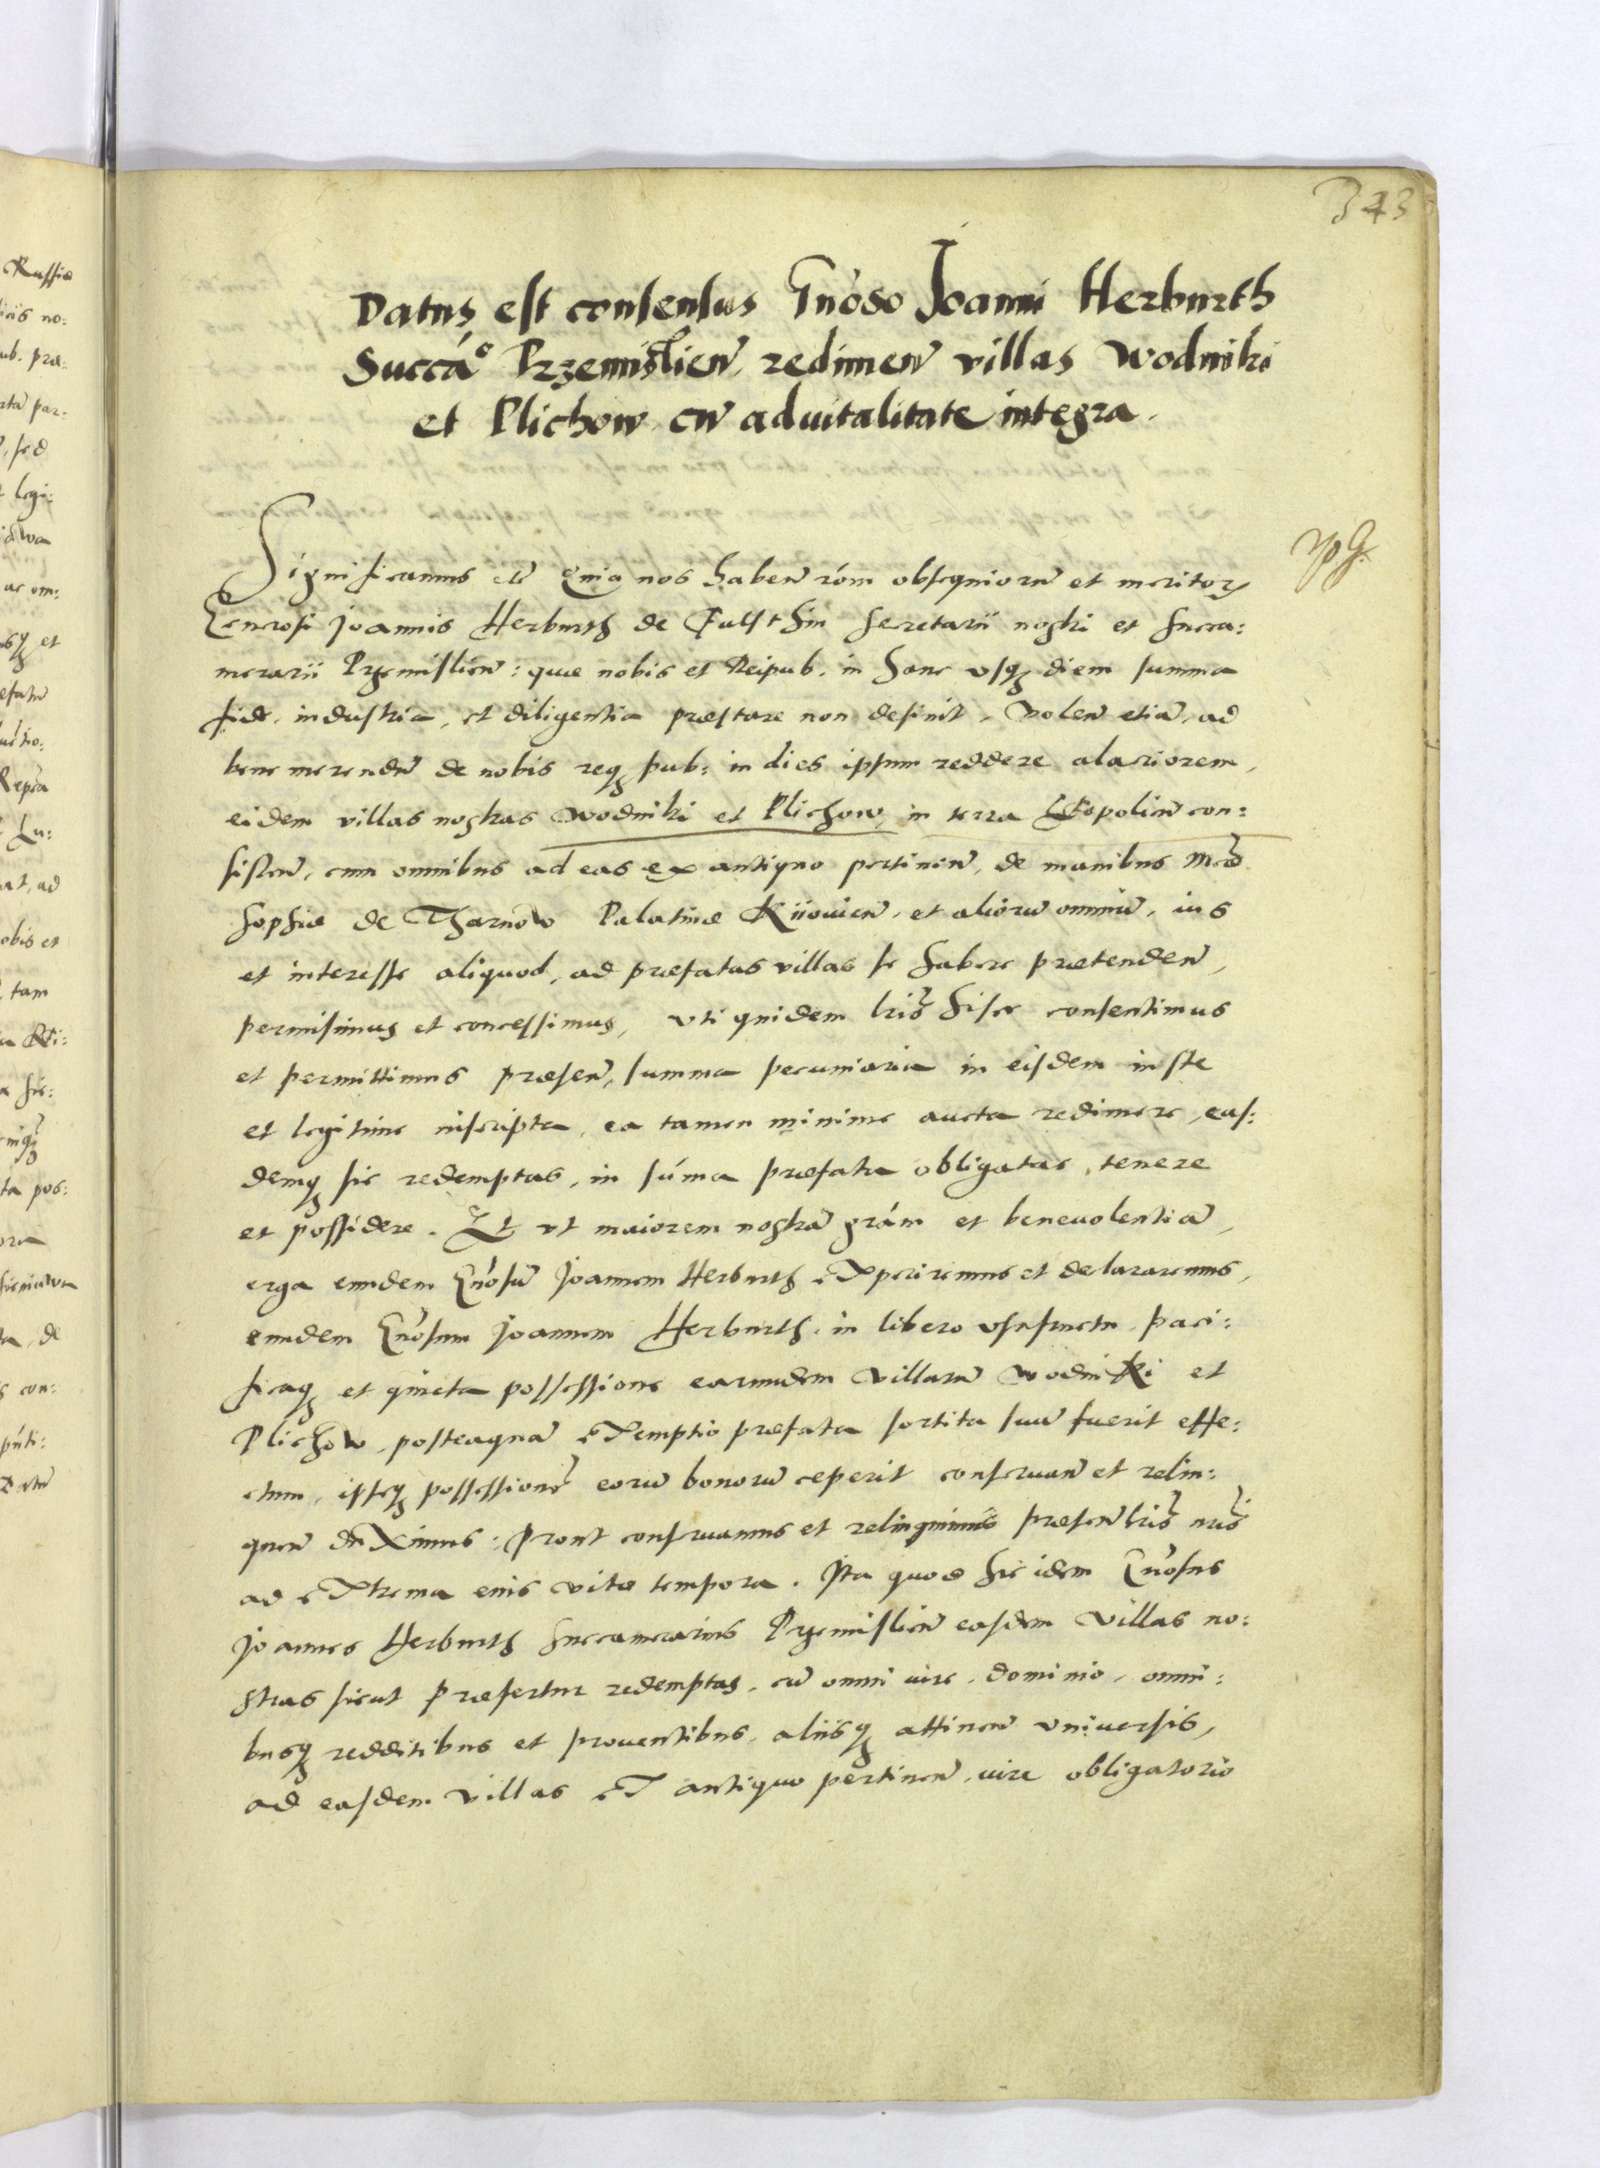 343
Datus est consensus Gnóso Joanni Herburth
Succáo Przemislien̄ redimen̄ villas Wodniki
et Plichow cū aduitalitate integra.
Significamus etc̄ Quia nos haben̄ róm obsequiorū et meritorꝝ
Generosi Joannis Herburth de Fulsthin Secretarii nostri et Succa:
merarii Przemislien̄: quæ nobis et Reipub. in hanc vsqꝫ diem summa
fide, industria, et diligentia præstare non desinit, Volen̄ etiā, ad
bene merendū de nobis reqꝫ pub: in dies ipsum reddere alacriorem,
eidem villas nostras Wodniki et Plichow, in terra Leopolien̄ con:
sisten̄, cum omnibus ad eas ex antiquo pertinen̄, de manibus Mcæ
Sophiæ de Tharnow Palatinæ Kiiouien̄, et aliorū omniū, ius
et interesse aliquod, ad præfatas villas se habere prætenden̄,
permisimus et concessimus, vti quidem lris hisce consentimus
et permittimus præsen̄, summa pecuniaria in eisdem iuste
et legitime inscripta, ea tamen minime aucta redimere, eas:
demqꝫ sic redemptas, in súma præfata obligatas, tenere
et possidere. Et vt maiorem nostrā grám et beneuolentiā,
erga eundem Gnósū Joannem Herburth experiremus et delararemus,
eundem Gnósum Joannem Herburth, in libero vsufructu, paci:
ficaqꝫ et quieta possessione earumdem villarū Wodniki et
Plichow, posteaquā exemptio præfata sortita suū fuerit effe:
ctum, ipseqꝫ possessionē eorū bonorū ceperit conseruan̄ et relin:
quen̄ duximus: Prout conseruamus et relinquimus præsen̄ lris nris
ad extrema eius vitæ tempora. Ita quod hic idem Gnósus
Joannes Herburth Succamerarius Przemislien̄ easdem villas no:
stras sicut præfertur redemptas, cū omni iure, dominio, omni:
busqꝫ redditibus et prouentibus, aliisqꝫ attinen̄ vniuersis,
ad easdem villas ex antiquo pertinen̄, iure obligatorio